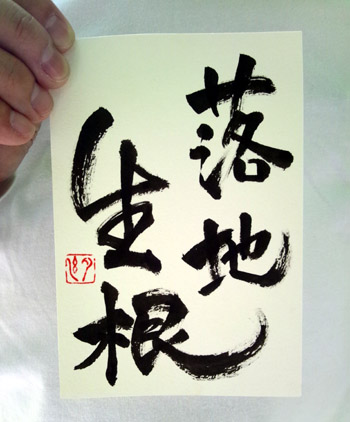 落地
生根